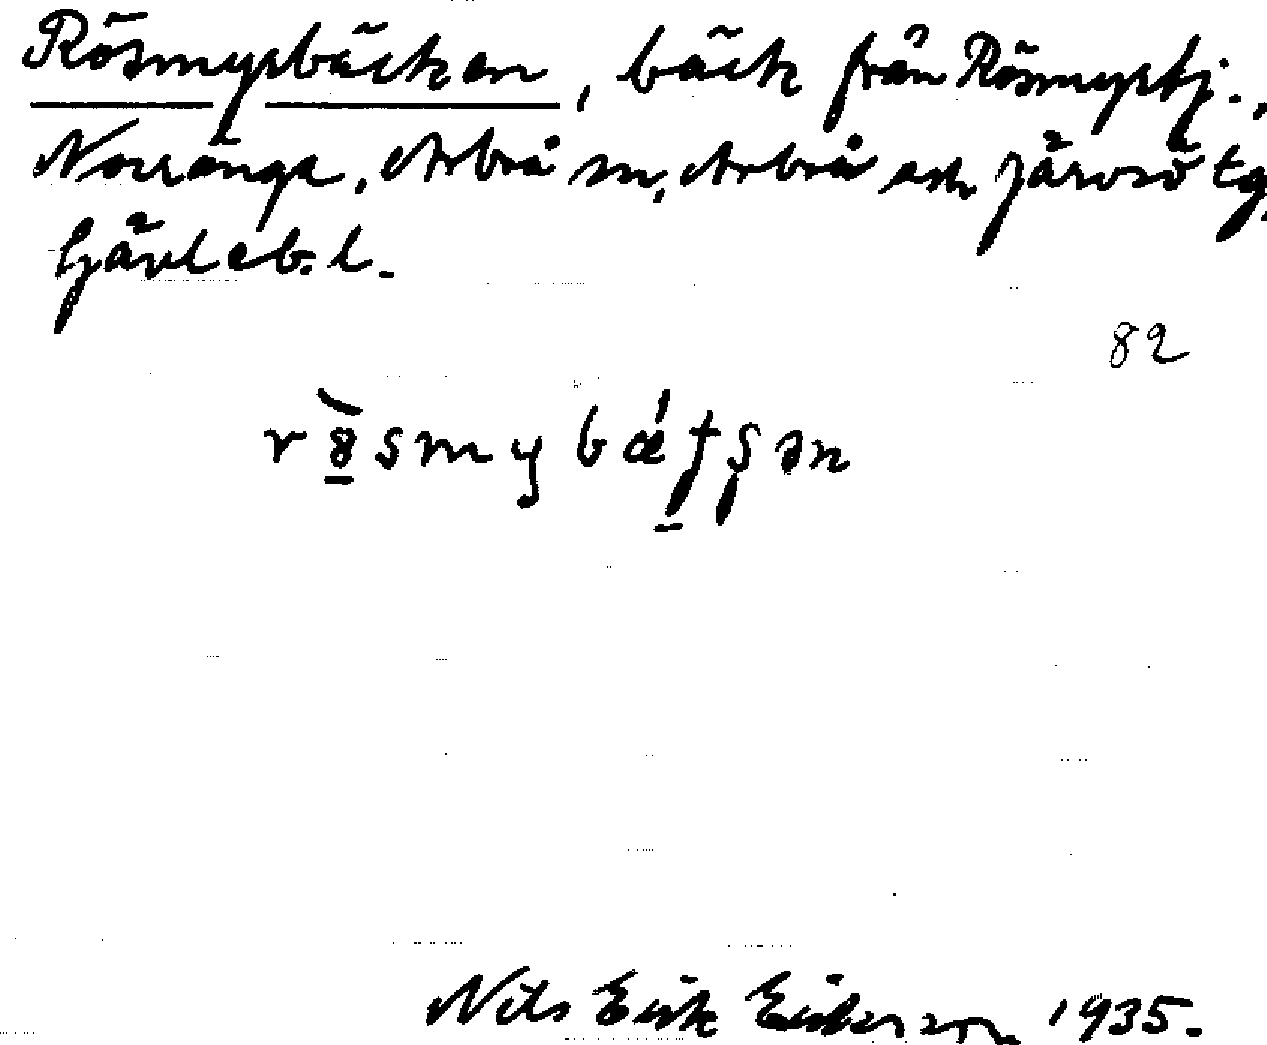 Rösmyrbäcken, bäck från Rösmyrtj.,
Norränge, Arbrå sn, Arbrå och Järvsö tg,
Gävleb. l.
82
Nils Erik Eriksson 1935.